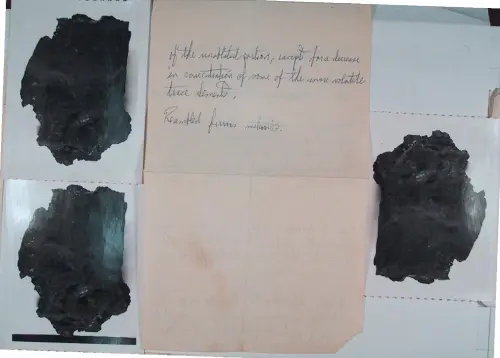 of the unablated portion, except for a decrease
in concentration of some of the more volatile
trace elements.
Resembled furnis